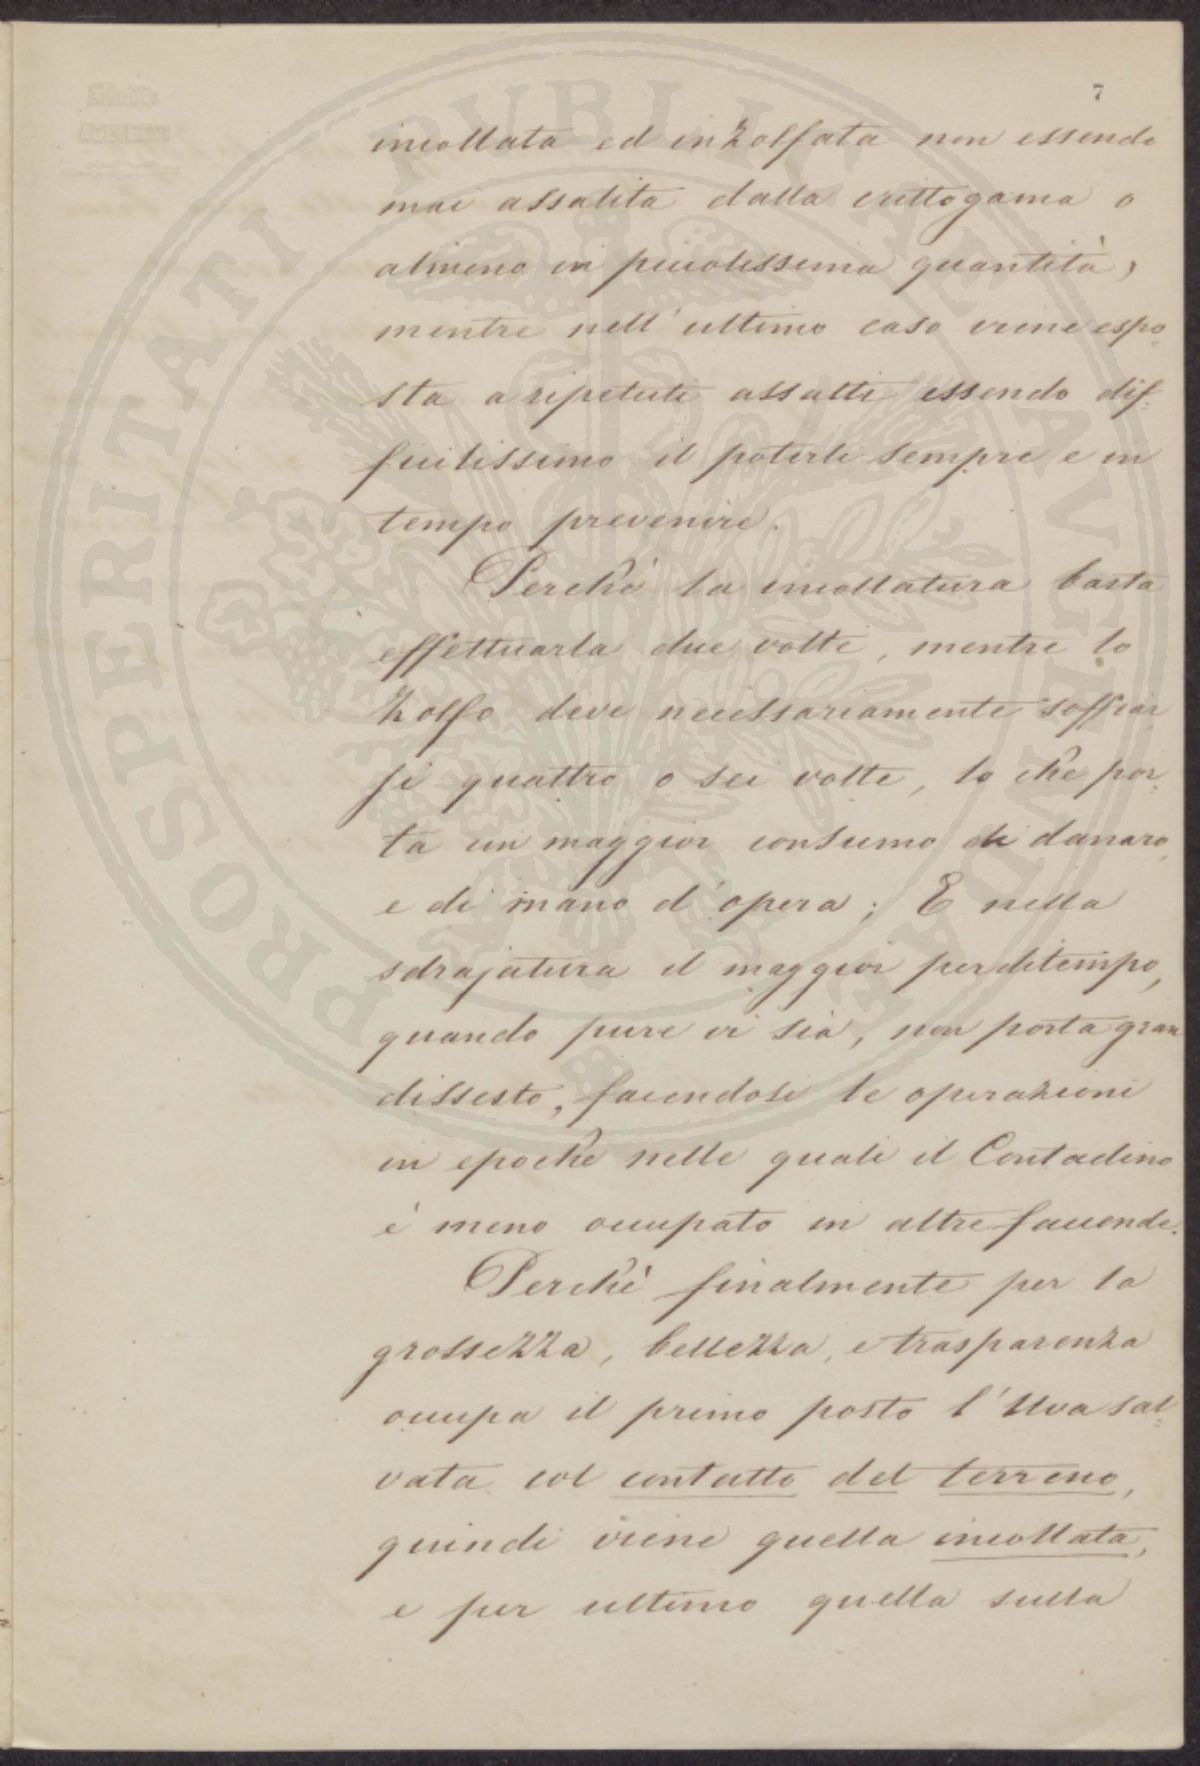 7
incollata ed inzolfata non essendo
mai assalita dalla crittogama o
almeno in piccolissima quantità,
mentre nell'ultimo caso viene espo
sta a ripetuti assalti essendo dif-
ficilissimo il poterli sempre e in
tempo prevenire.
Perchè la incollatura basta
effettuarla due volte, mentre lo
Zolfo deve necessariamente soffiar
si quattro o sei volte, lo che por-
ta un maggior consumo di danaro,
e di mano d'opera; E nella
sdrajatura il maggior perditempo,
quando pure vi sia, non porta gran
dissesto, facendosi le operazioni
in epoche nelle quali il Contadino
è meno occupato in altre faccende.
Perchè finalmente per la
grossezza, bellezza, e trasparenza
occupa il primo posto l'Uva sal-
vata col contatto del terreno,
quindi viene quella incollata,
e per ultimo quella sulla
PROSPERITATI PUBLICAE AUGENDAE